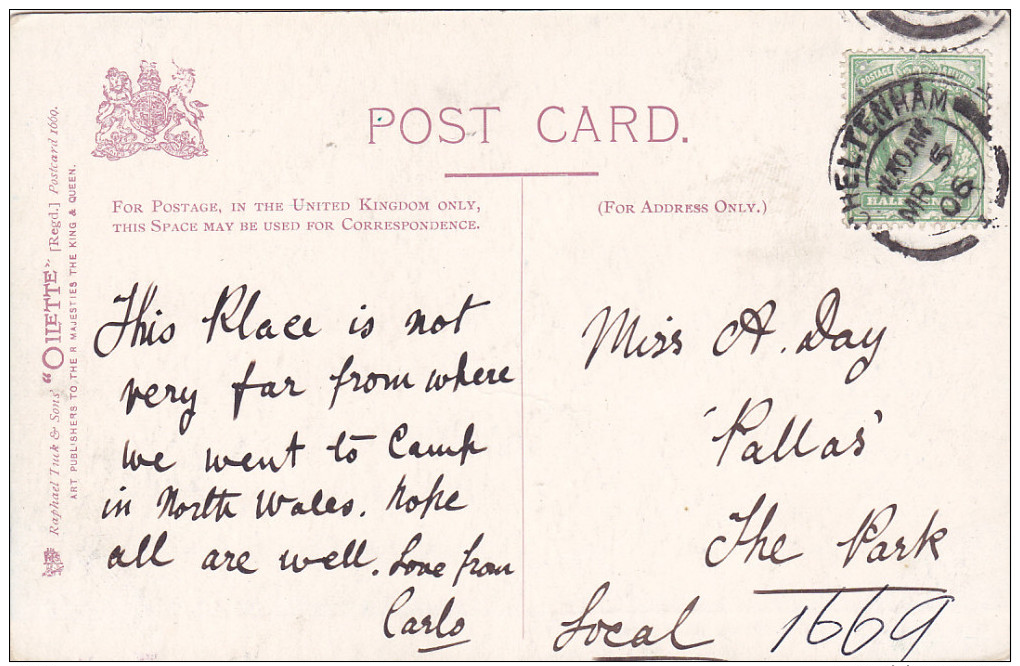 POST CARD.
FOR POSTAGE, IN THE UNITED KINGDOM ONLY,
THIS SPACE MAY BE USED FOR CORRESPONDENCE.
(FOR ADDRESS ONLY.)
Raphael Tuck & Sons' "OILETTE" [Regd.] Postcard 1669.
ART PUBLISHERS TO THEIR MAJESTIES THE KING & QUEEN.
This Place is not
very far from where
we went to Camp
in North Wales. hope
all are well. Love from
Carlo
Miss A. Day
'Pallas'
The Park
Local
1669
POSTAGE
HALF
CHELTENHAM
MR 5
06